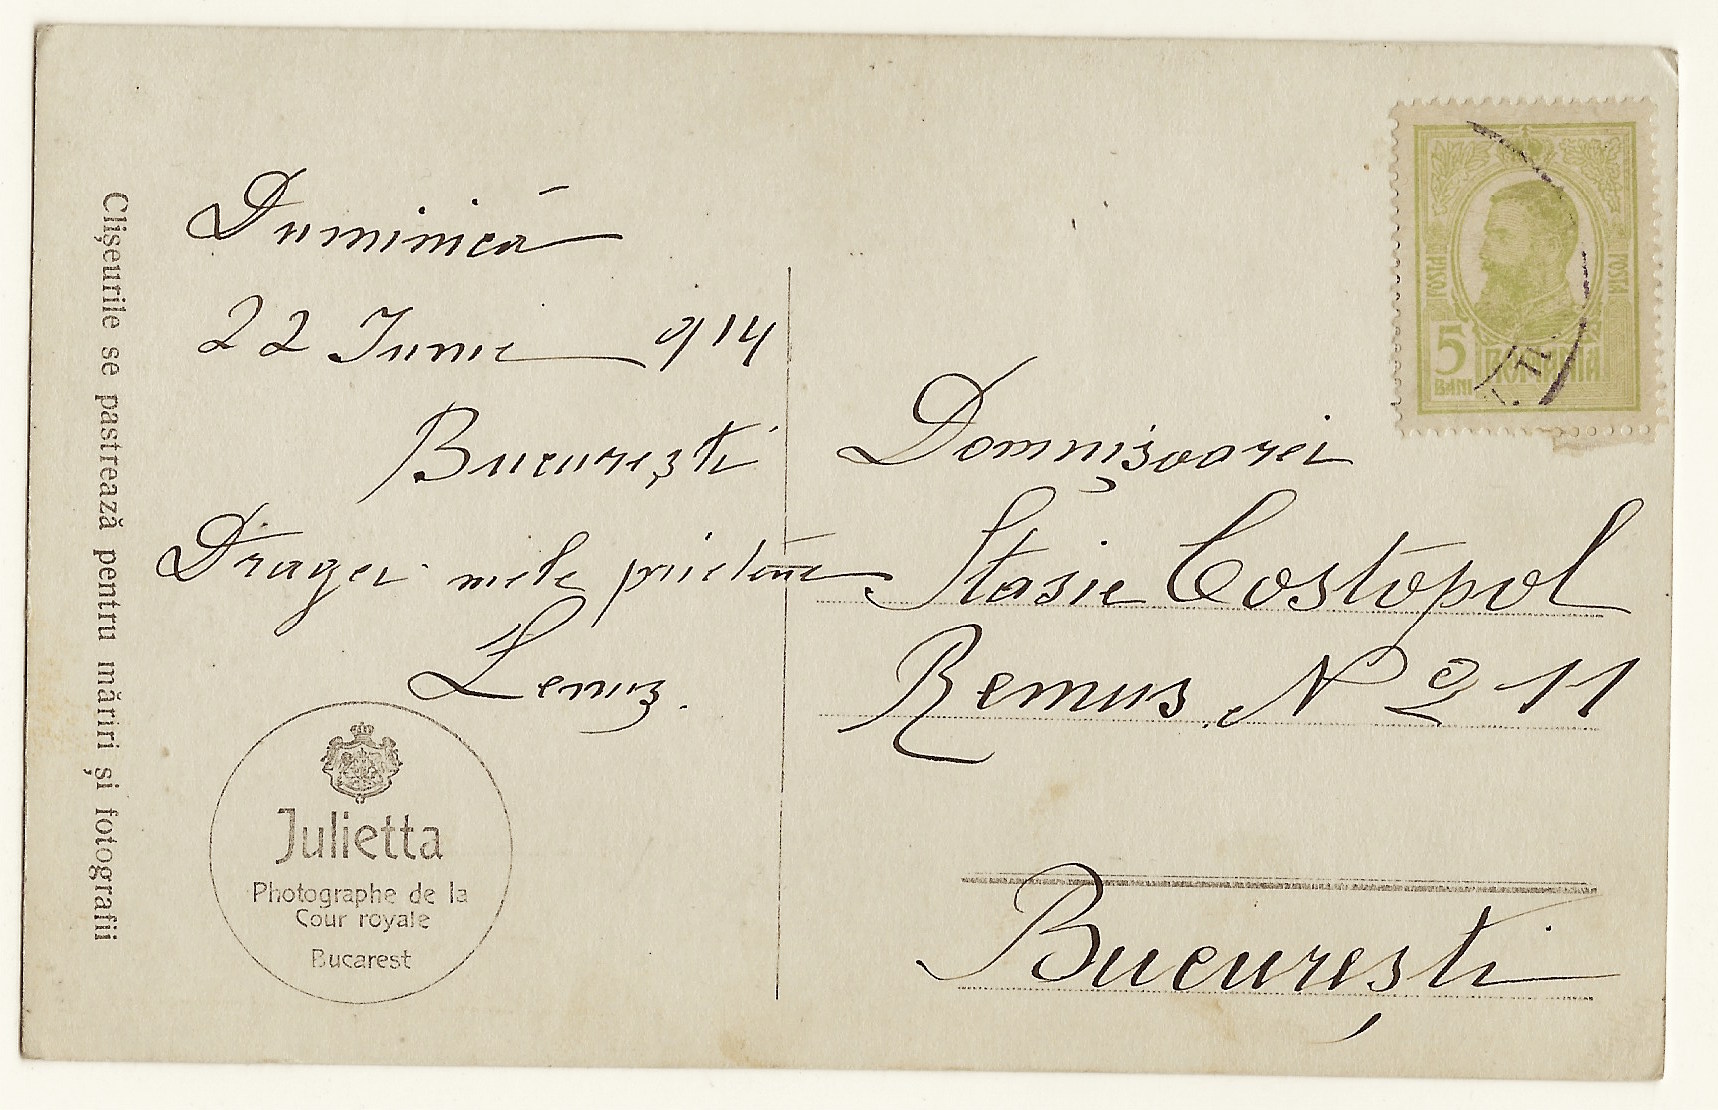 Clișeurile se pastrează pentru măriri și fotografii
Duminică
22 Iunie 914
București
Dragei mele prietene
Lenuș.
Julietta
Photographe de la
Cour royale
Bucarest
POSTA
5
BANI
ROMANIA
Domnișoarei
Stasie Costopol
Remus No 11
București